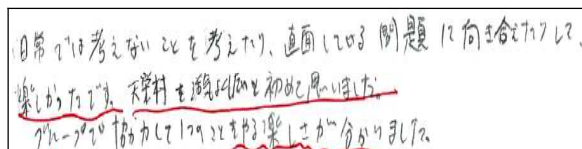 日常では考えないことを考えたり、直面している問題に向き合えたりして、
楽しかったです。天栄村を元気にしたいと初めて思いました。
グループで協力して1つのことをやる楽しさが分かりました。